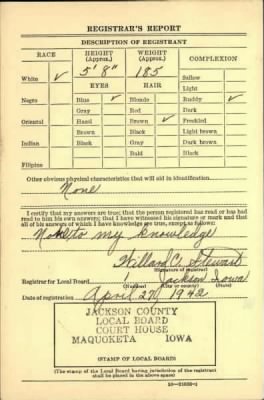 REGISTRAR'S REPORT
DESCRIPTION OF REGISTRANT
RACE HEIGHT (Approx.) WEIGHT (Approx.) COMPLEXION
White ✓ 5' 8" 185 Sallow
EYES HAIR Light
Negro Blue ✓ Blonde Ruddy ✓
Gray Red Dark
Oriental Hazel Brown ✓ Freckled
Brown Black Light brown
Indian Black Gray Dark brown
Bald Black
Filipino
Other obvious physical characteristics that will aid in identification
None
I certify that my answers are true; that the person registered has read or has had read to him his own answers; that I have witnessed his signature or mark and that all of his answers of which I have knowledge are true, except as follows:
None to my knowledge
Willard C. Steward
(Signature of registrar)
Registrar for Local Board Jackson Iowa
(Number) (City or county) (State)
Date of registration April 27, 1942
JACKSON COUNTY
LOCAL BOARD
COURT HOUSE
MAQUOKETA IOWA
(STAMP OF LOCAL BOARD)
(The stamp of the Local Board having jurisdiction of the registrant
shall be placed in the above space)